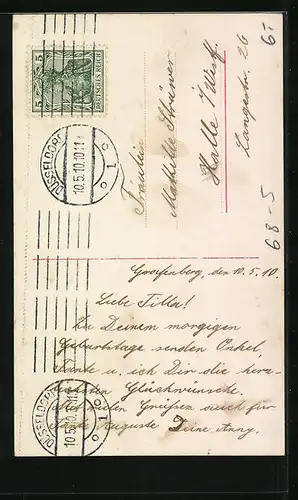 5 5
DEUTSCHES REICH
DÜSSELDORF
10.5.10.10-11
1
c c
Fräulein
Mathilde Strüwer
Halle i/Westf.
Langestr. 26
6T
68-5
Grafenberg, den 10.5.10.
Liebe Tilla!
Zu Deinem morgigen
Geburtstage senden Onkel,
Tante u. ich Dir die herz-
lichsten Glückwünsche.
Mit vielen Grüßen auch für
Tante Auguste Deine Anny.
DÜSSELDORF
1
c